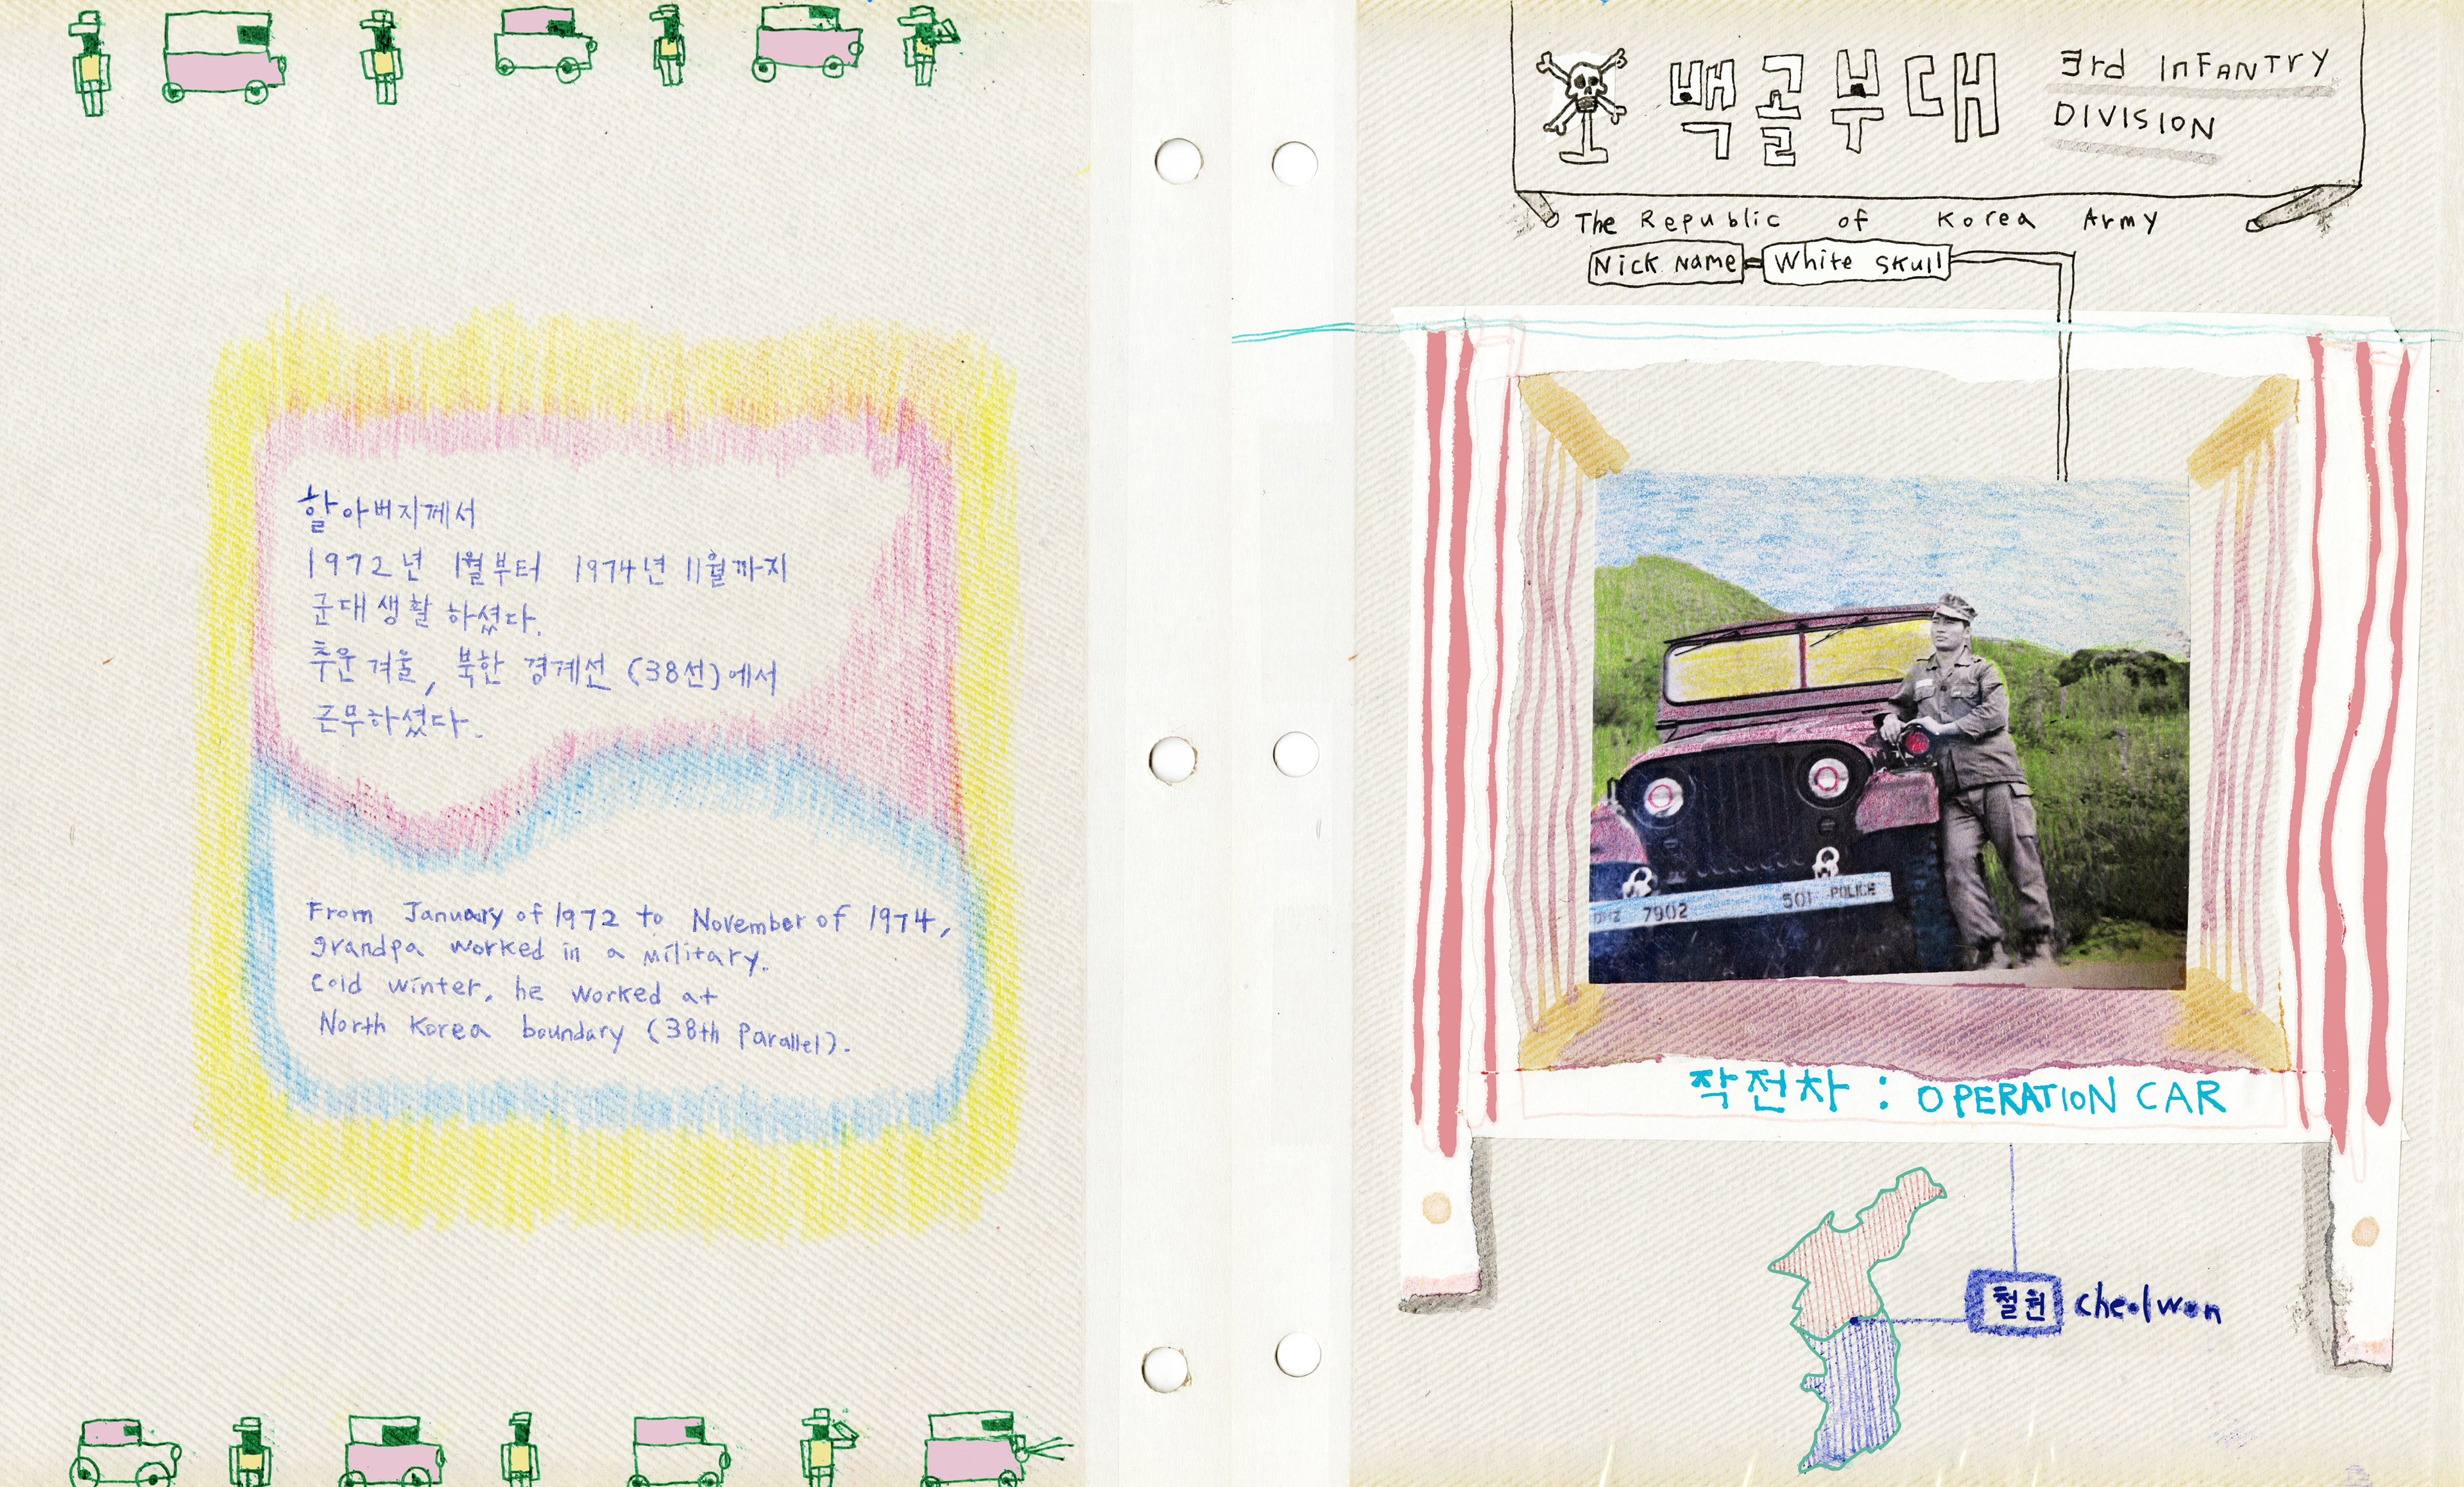 할아버지께서
1972년 1월부터 1974년 11월까지
군대생활 하셨다.
추운겨울, 북한 경계선 (38선)에서
근무하셨다.
From January of 1972 to November of 1974,
grandpa worked in a military.
Cold winter, he worked at
North Korea boundary (38th Parallel).
백골부대 3rd INFANTRY
DIVISION
The Republic of Korea Army
Nick Name = White Skull
DMZ 7902 501 POLICE
작전차 : OPERATION CAR
철원 cheolwon